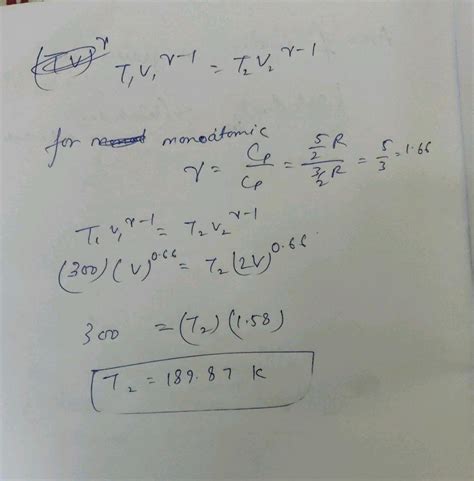 (TV)^γ T₁V₁^γ-1 = T₂V₂^γ-1
for monoatomic
γ = Cp/Cp = (5/2 R)/(3/2 R) = 5/3 = 1.66
T₁V₁^γ-1 = T₂V₂^γ-1
(300)(V)^0.66 = T₂(2V)^0.66
300 = (T₂)(1.58)
T₂ = 189.87 K